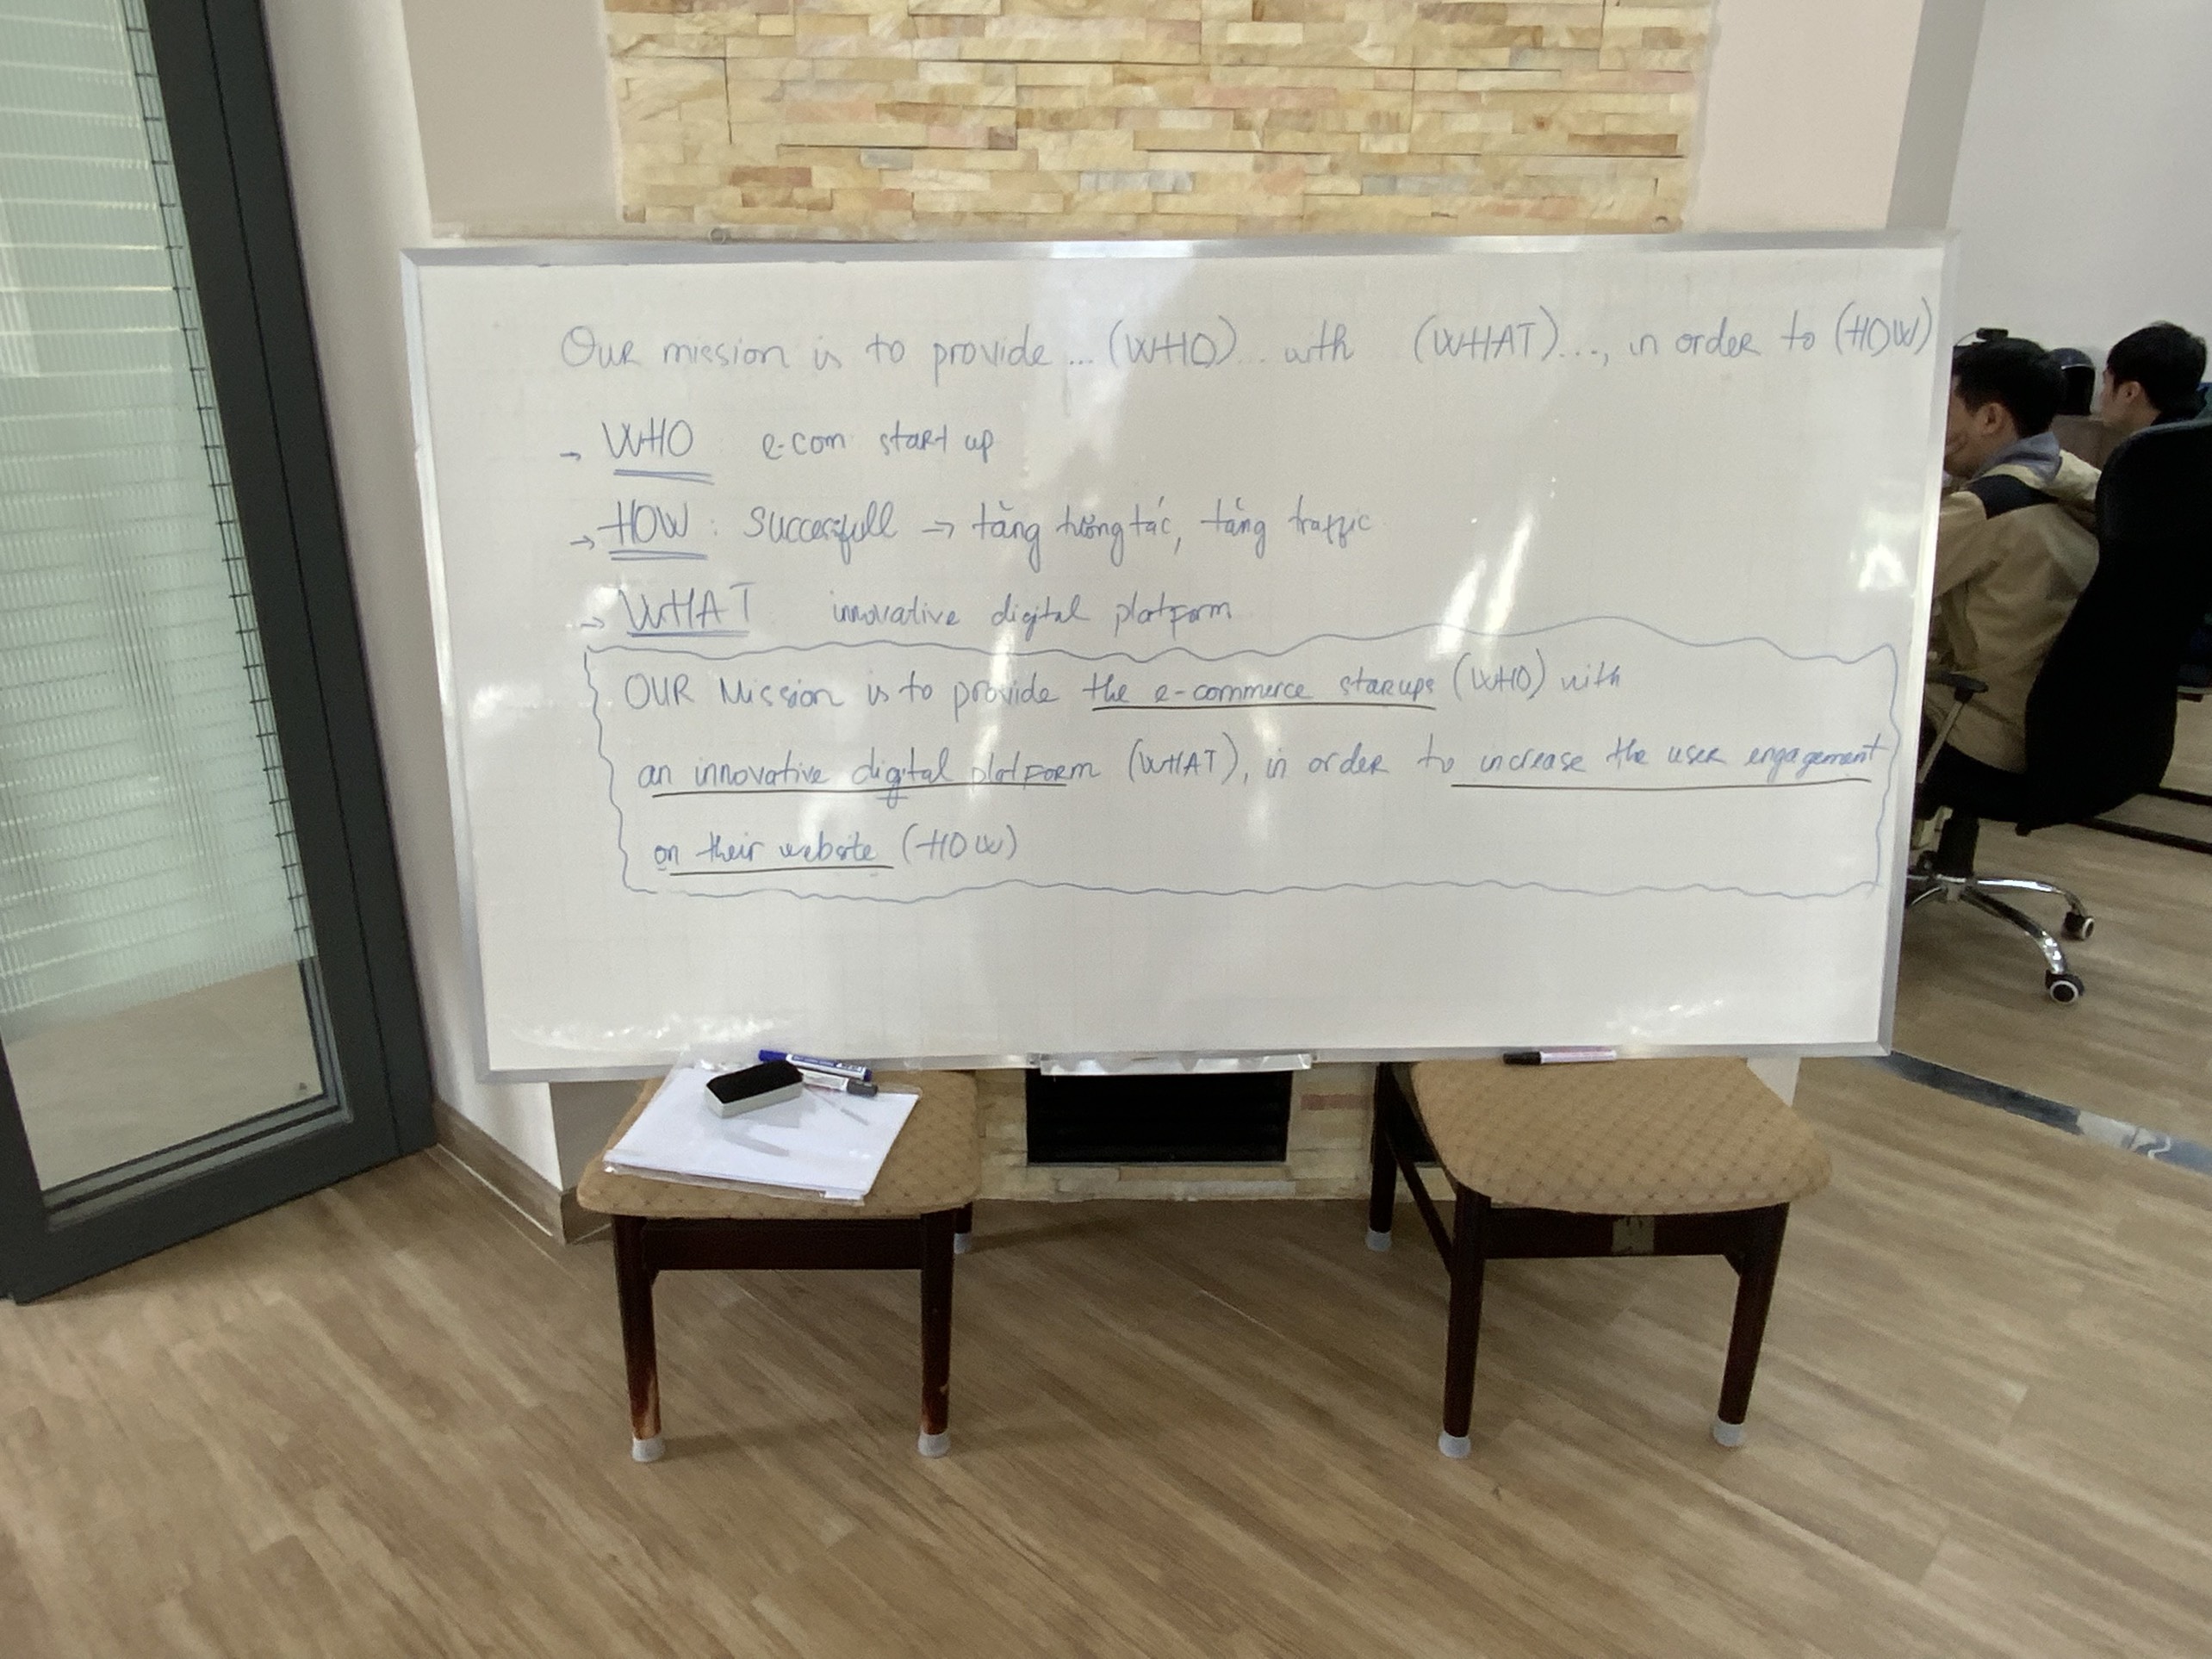 Our mission is to provide ... (WHO) ... with (WHAT) ..., in order to (HOW)
→ WHO e-com start up
→ HOW : Successfull → tăng tương tác, tăng traffic
→ WHAT innovative digital platform
OUR Mission is to provide the e-commerce starups (WHO) with
an innovative digital platform (WHAT), in order to increase the user engagement
on their website (HOW)